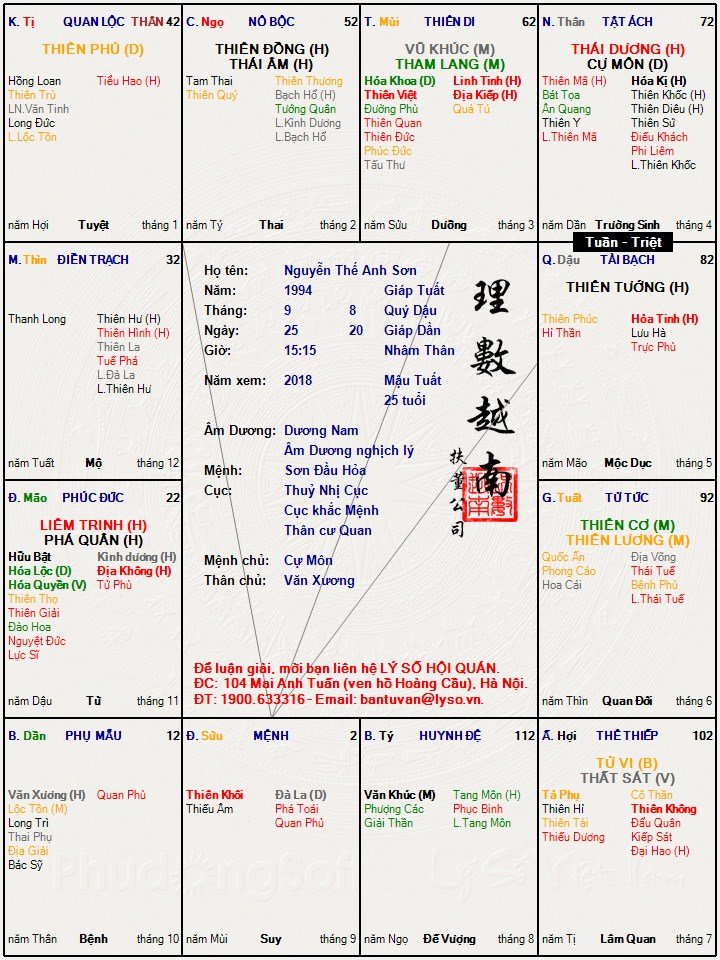 K. Tị QUAN LỘC THÂN 42
THIÊN PHỦ (D)
Hồng Loan Tiểu Hao (H)
Thiên Trù
LN.Văn Tinh
Long Đức
L.Lộc Tồn
năm Hợi Tuyệt tháng 1
C. Ngọ NÔ BỘC 52
THIÊN ĐỒNG (H)
THÁI ÂM (H)
Tam Thai Thiên Thương
Thiên Quý Bạch Hổ (H)
Tướng Quân
L.Kình Dương
L.Bạch Hổ
năm Tý Thai tháng 2
T. Mùi THIÊN DI 62
VŨ KHÚC (M)
THAM LANG (M)
Hóa Khoa (D) Linh Tinh (H)
Thiên Việt Địa Kiếp (H)
Đường Phù Quả Tú
Thiên Quan
Thiên Đức
Phúc Đức
Tấu Thư
năm Sửu Dưỡng tháng 3
N. Thân TẬT ÁCH 72
THÁI DƯƠNG (H)
CỰ MÔN (D)
Thiên Mã (H) Hóa Kị (H)
Bát Tọa Thiên Khốc (H)
Ân Quang Thiên Diêu (H)
Thiên Y Thiên Sứ
L.Thiên Mã Điếu Khách
Phi Liêm
L.Thiên Khốc
năm Dần Trường Sinh tháng 4
Tuần - Triệt
M. Thìn ĐIỀN TRẠCH 32
Thanh Long Thiên Hư (H)
Thiên Hình (H)
Thiên La
Tuế Phá
L.Đà La
L.Thiên Hư
năm Tuất Mộ tháng 12
Họ tên: Nguyễn Thế Anh Sơn
Năm: 1994 Giáp Tuất
Tháng: 9 8 Quý Dậu
Ngày: 25 20 Giáp Dần
Giờ: 15:15 Nhâm Thân
Năm xem: 2018 Mậu Tuất
25 tuổi
Âm Dương: Dương Nam
Âm Dương nghịch lý
Mệnh: Sơn Đầu Hỏa
Cục: Thuỷ Nhị Cục
Cục khắc Mệnh
Thân cư Quan
Mệnh chủ: Cự Môn
Thân chủ: Văn Xương
理數越南
扶董公司
Để luận giải, mời bạn liên hệ LÝ SỐ HỘI QUÁN.
ĐC: 104 Mai Anh Tuấn (ven hồ Hoàng Cầu), Hà Nội.
ĐT: 1900.633316 - Email: bantuvan@lyso.vn.
Q. Dậu TÀI BẠCH 82
THIÊN TƯỚNG (H)
Thiên Phúc Hỏa Tinh (H)
Hỉ Thần Lưu Hà
Trực Phù
năm Mão Mộc Dục tháng 5
Đ. Mão PHÚC ĐỨC 22
LIÊM TRINH (H)
PHÁ QUÂN (H)
Hữu Bật Kình dương (H)
Hóa Lộc (D) Địa Không (H)
Hóa Quyền (V) Tử Phù
Thiên Thọ
Thiên Giải
Đào Hoa
Nguyệt Đức
Lực Sĩ
năm Dậu Tử tháng 11
G. Tuất TỬ TỨC 92
THIÊN CƠ (M)
THIÊN LƯƠNG (M)
Quốc Ấn Địa Võng
Phong Cáo Thái Tuế
Hoa Cái Bệnh Phù
L.Thái Tuế
năm Thìn Quan Đới tháng 6
B. Dần PHỤ MẪU 12
Văn Xương (H) Quan Phù
Lộc Tồn (M)
Long Trì
Thai Phụ
Địa Giải
Bác Sỹ
PhudongSoft
năm Thân Bệnh tháng 10
Đ. Sửu MỆNH 2
Thiên Khôi Đà La (D)
Thiếu Âm Phá Toái
Quan Phủ
năm Mùi Suy tháng 9
B. Tý HUYNH ĐỆ 112
Văn Khúc (M) Tang Môn (H)
Phượng Các Phục Binh
Giải Thần L.Tang Môn
năm Ngọ Đế Vượng tháng 8
Ấ. Hợi THÊ THIẾP 102
TỬ VI (B)
THẤT SÁT (V)
Tả Phụ Cô Thần
Thiên Hỉ Thiên Không
Thiên Tài Đẩu Quân
Thiếu Dương Kiếp Sát
Đại Hao (H)
Lý Số Việt Nam
năm Tị Lâm Quan tháng 7